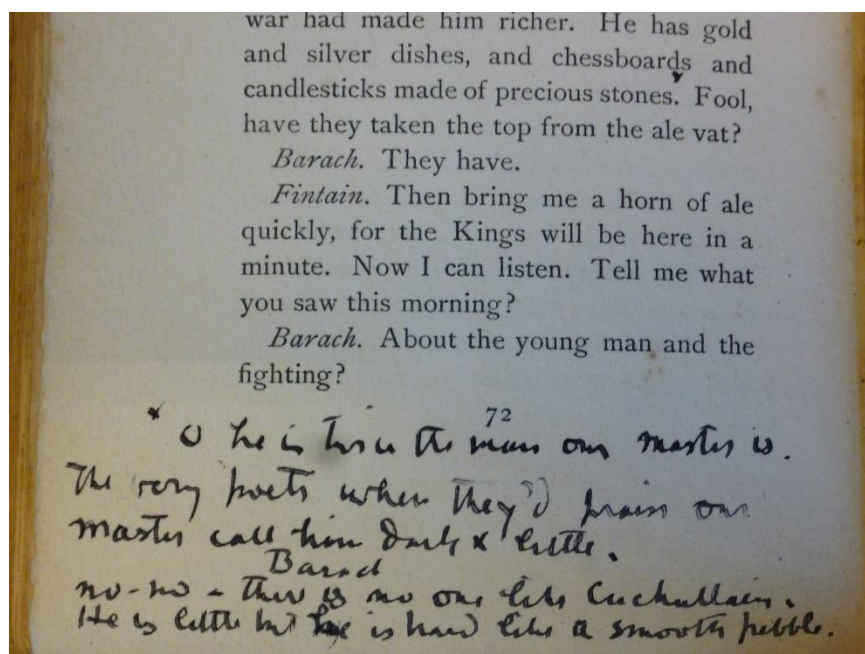 war had made him richer. He has gold
and silver dishes, and chessboards and
candlesticks made of precious stones. Fool,
have they taken the top from the ale vat?
Barach. They have.
Fintain. Then bring me a horn of ale
quickly, for the Kings will be here in a
minute. Now I can listen. Tell me what
you saw this morning?
Barach. About the young man and the
fighting?
72
* O he is twice the man our master is.
The very poets when they'd praise our
master call him dark & little.
Barach
no - no - there is no one like Cuchullain.
He is little but he is hard like a smooth pebble.